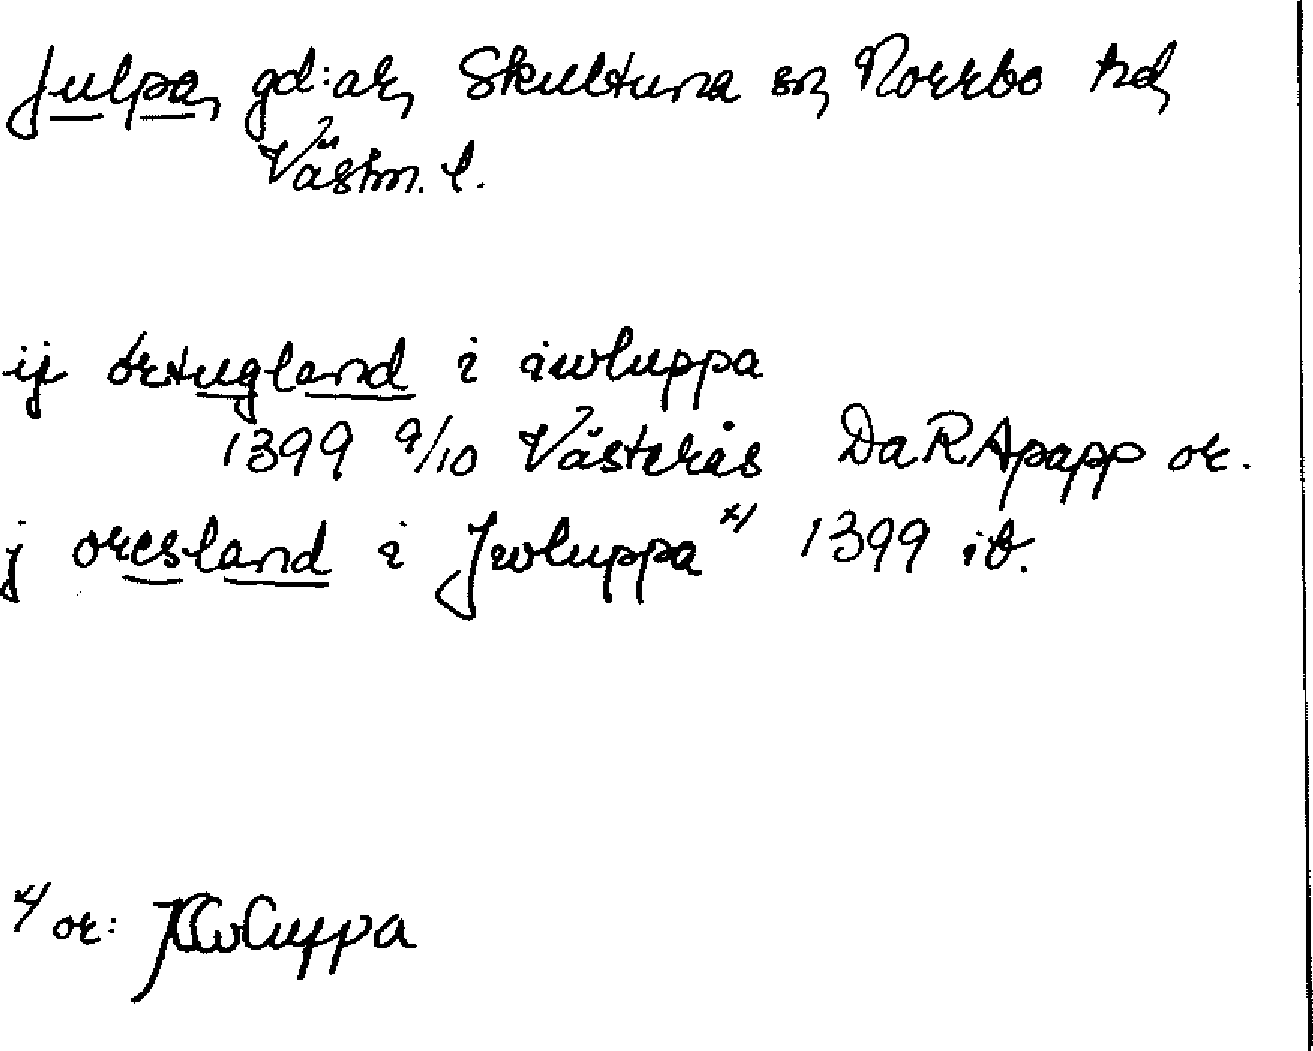 Julpa, gd:ar, Skultuna sn, Norrbo hd,
Västm. l.
ij örtugland i iwluppa
1399 9/10 Västerås DaRApapp or.
j øresland i Jwluppa x/ 1399 ib.
x/ or: Jwluppa